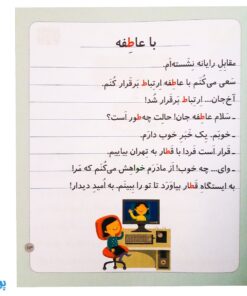 با عاطِفه
مقابِلِ رایانه نِشَسته‌اَم.
سَعی می‌کُنَم با عاطِفه اِرتِباط بَرقَرار کُنَم.
آخ‌جان... اِرتِباط بَرقَرار شُد!
ـ سَلام عاطِفه جان! حالَت چه‌طور است؟
ـ خوبَم. یِک خَبَرِ خوب دارَم.
ـ قَرار است فَردا با قَطار به تِهران بیاییم.
ـ وای... چه خوب! اَز مادَرَم خواهِش می‌کُنَم که مَرا
به ایستگاهِ قَطار بیاوَرَد تا تو را ببینَم. به اُمیدِ دیدار!